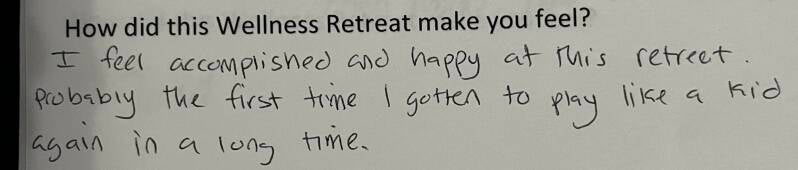 How did this Wellness Retreat make you feel?
I feel accomplished and happy at this retreet.
Probably the first time I gotten to play like a kid
again in a long time.